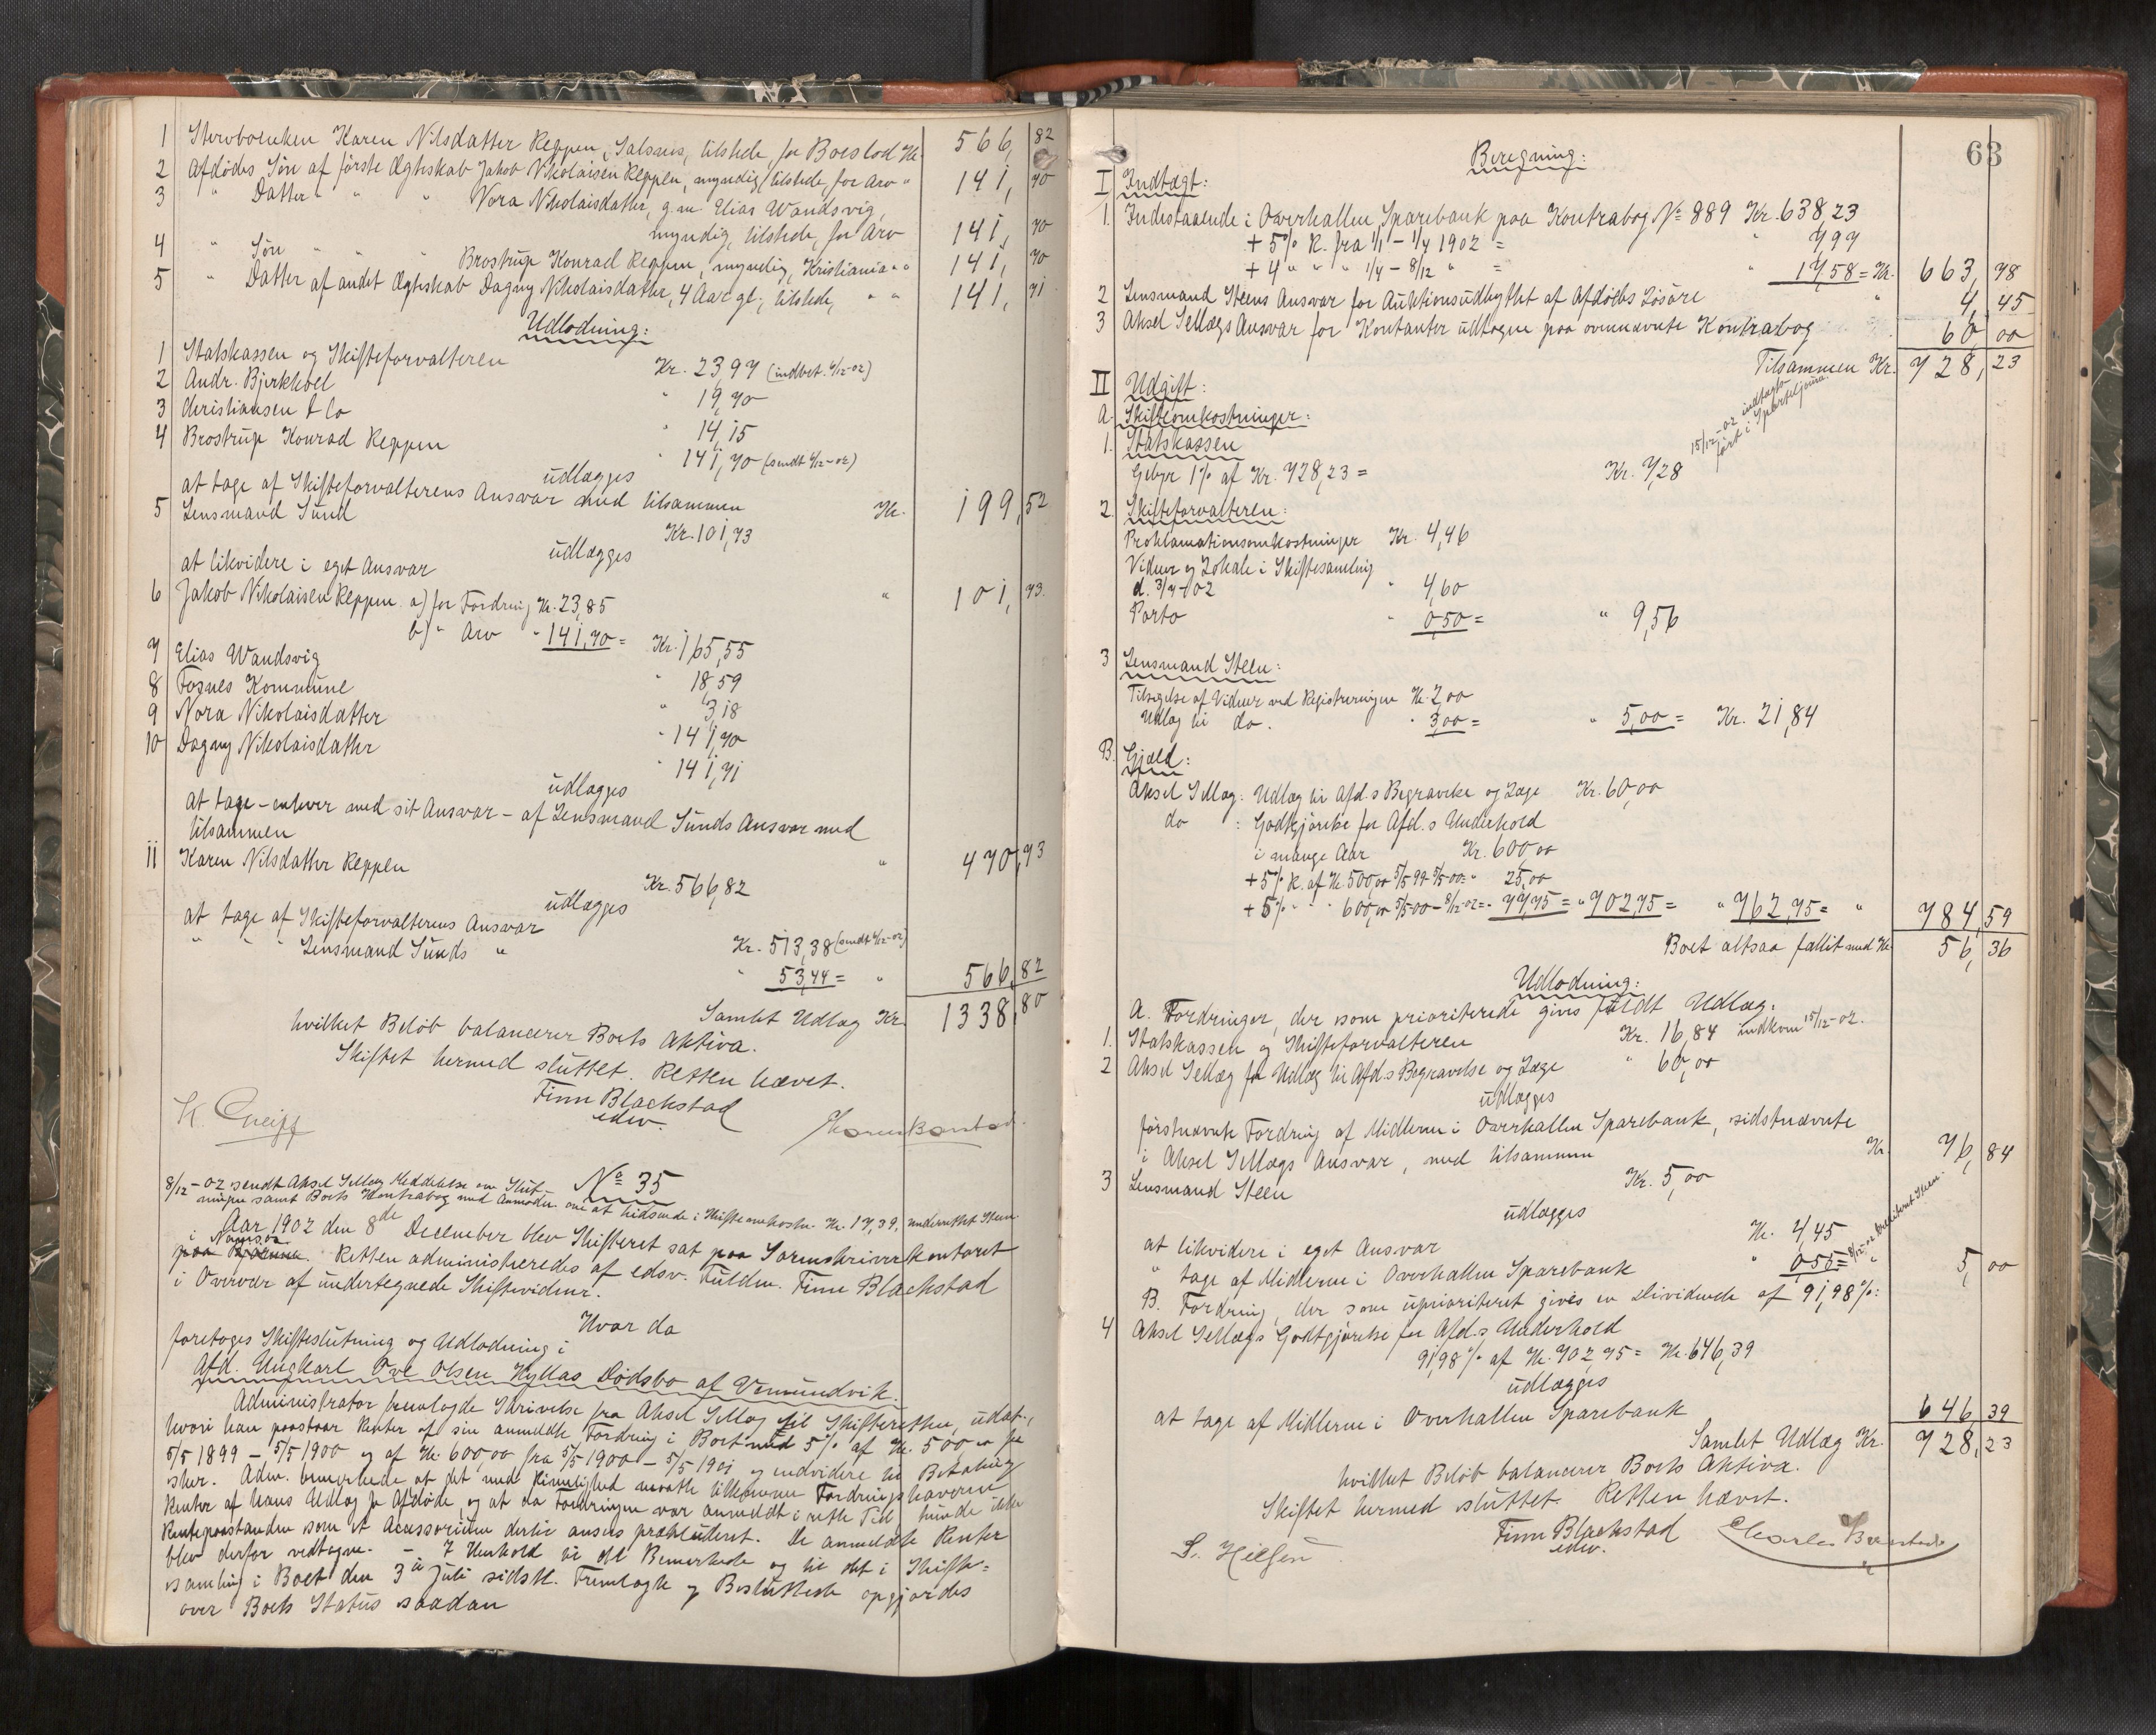 1 Stervboenken Karen Nilsdatter Reppen, Salsnes, tilstede, for Boeslod Kr. 566,82
2 Afdødes Søn af første Ægteskab Jakob Nikolaisen Reppen, myndig, tilstede, for Arv " 141,70
3 " Datter " " " Nora Nikolaisdatter, g.m. Elias Wandsvig,
myndig, tilstede, for Arv 141,70
4 " Søn " " " Brostrup Konrad Reppen, myndig, Kristiania " " 141,70
5 " Datter af andet Ægteskab Dagny Nikolaisdatter, 4 Aar gl., tilstede, " " 141,71
Udlodning:
1 Statskassen og Skifteforvalteren Kr. 23,97 (indbet. 9/12-02)
2 Andr. Bjerkhoel " 19,70
3 Christiansen & Co " 14,15
4 Brostrup Konrad Reppen " 141,70 (sendt 9/12-02)
udlægges
at tage af Skifteforvalterens Ansvar med tilsammen Kr. 199,52
5 Lensmand Sund Kr. 101,73
udlægges
at likvidere i eget Ansvar " 101,73
6 Jakob Nikolaisen Reppen a) for Fordring Kr. 23,85
b) " Arv " 141,70 = Kr. 165,55
7 Elias Wandsvig " 18,59
8 Fosnes Kommune " 3,18
9 Nora Nikolaisdatter " 141,70
10 Dagny Nikolaisdatter " 141,71
udlægges
at tage – enhver med sit Ansvar – af Lensmand Sunds Ansvar med
tilsammen " 470,73
11 Karen Nilsdatter Reppen Kr. 566,82
udlægges
at tage af Skifteforvalterens Ansvar Kr. 513,38 (sendt 9/12-02)
" " " Lensmand Sunds " " 53,44 = " 566,82
Samlet Udlæg Kr. 1338,80
hvilket Beløb balancerer Boets Aktiva.
Skiftet hermed sluttet. Retten hævet.
Finn Blackstad
edsv.
8/12-02 sendt Aksel Sellæg Meddelelse om Slut-
ningen samt Boets Kontrabog med Anmodn. om at tilsende i Skifteomkostn. Kr. 17,39, underrettet Steen
No 35
Aar 1902 den 8de December blev Skifteret sat paa Sorenskriverkontoret
i Namsos. Retten administreredes af edsv. Fuldm. Finn Blackstad
i Overvær af undertegnede Skiftevidner.
Hvor da
foretoges Skifteslutning og Udlodning i
Afd. Ungkarl Ole Olsen Hyllas Dødsbo af Vemundvik.
Administrator fremlagde Skrivelse fra Aksel Sellæg til Skifteretten, udat.,
hvori han paastaar Renter af sin anmeldte Fordring i Boet med 5% af Kr. 500,00 fra
5/5 1899 – 5/5 1900 og af Kr. 600,00 fra 5/5 1900 – 5/5 1901 og endvidere til Betaling
sker. Adm. bemerkede at det med Rimelighed maatte tilkomme Fordringshaveren
Renter af hans Udlæg for Afdøde, og at da Fordringen var anmeldt i rette Tid kunde ikke
Rentepaastanden som et Accessorium dertil ansees prækluderet. De anmeldte Renter
blev derfor vedtagne. – I Henhold til det Bemerkede og til det i Skifte=
samling i Boet den 3die Juli sidstl. Fremlagte og Besluttede opgjordes
over Boets Status saadan
63
Beregning:
I Indtægt:
1. Indestaaende i Overhallen Sparebank paa Kontrabog No 889 Kr. 638,23
+ 5% R. fra 1/1 – 1/4 1902 = " 7,97
+ 4 " " " 1/4 – 8/12 " = " 17,58 = Kr. 663,78
2 Lensmand Steens Ansvar for Auktionsudbyttet af Afdødes Løsøre " 4,45
3 Aksel Sellægs Ansvar for Kontanter udtagne paa ovennævnte Kontrabog " 60,00
Tilsammen Kr. 728,23
II Udgift:
A. Skifteomkostninger:
1. Statskassen
Gebyr 1% af Kr. 728,23 = Kr. 7,28
15/12-02 indtægts-
ført i Sporteljourn.
2. Skifteforvalteren:
Proklamationsomkostninger Kr. 4,46
Vidner og Lokale i Skiftesamling
d. 3/7-02 " 4,60
Porto " 0,50 = " 9,56
3 Lensmand Steen:
Tilsigelse af Vidner ved Registreringen Kr. 2,00
Udlæg til do. " 3,00 = " 5,00 = Kr. 21,84
B. Gjæld:
Aksel Sellæg: Udlæg til Afd.s Begravelse og Læge Kr. 60,00
do : Godtgjørelse for Afd.s Underhold
i mange Aar Kr. 600,00
+ 5% R. af Kr. 500,00 5/5 99 – 5/5-00 = " 25,00
+ 5% " " " 600,00 5/5-00 – 8/12-02 = " 77,75 = " 702,75 = " 762,75 = " 784,59
Boet altsaa fallit med Kr. 56,36
Udlodning:
A. Fordringer, der som prioriterede gives fuldt Udlæg.
1. Statskassen og Skifteforvalteren Kr. 16,84 indkom 15/12-02.
2 Aksel Sellæg for Udlæg til Afd.s Begravelse og Læge " 60,00
udlægges
førstnævnte Fordring af Midlerne i Overhallen Sparebank, sidstnævnte
i Aksel Sellægs Ansvar, med tilsammen Kr. 76,84
3 Lensmand Steen Kr. 5,00
udlægges
at likvidere i eget Ansvar Kr. 4,45
" tage af Midlerne i Overhallen Sparebank " 0,55 = " 5,00
B. Fordring, der som uprioriteret gives en Dividende af 91,98%:
4 Aksel Sellægs Godtgjørelse for Afd.s Underhold
91,98% af Kr. 702,75 = Kr. 646,39
udlægges
at tage af Midlerne i Overhallen Sparebank 646,39
Samlet Udlæg Kr. 728,23
hvilket Beløb balancerer Boets Aktiva.
Skiftet hermed sluttet. Retten hævet.
Finn Blackstad
edsv.